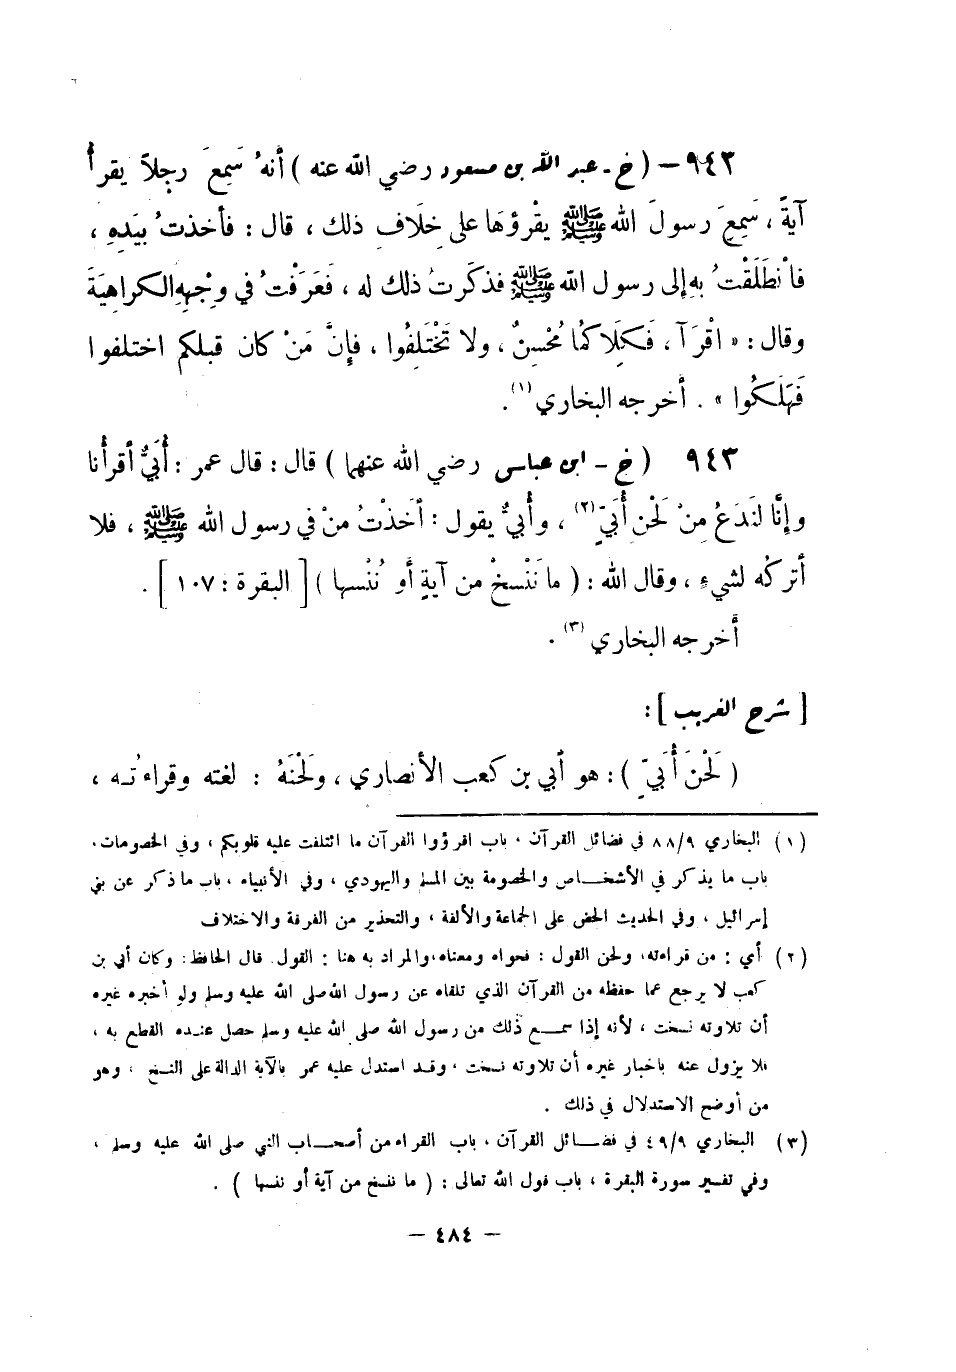 ٩٤٢ – ( خ - عبد الله بن مسعود رضي الله عنه ) أنهُ سَمِعَ رجلاً يقرأُ
آيةً ، سَمِعَ رسولَ الله ﷺ يقْرؤهَا على خِلَافِ ذلك ، قال : فأخذتُ بيَدِهِ ،
فانْطَلَقْتُ بِهِ إلى رسول الله ﷺ فذكَرتُ ذلك له ، فَعَرَفْتُ في وِجْهِهِ الكراهِيَةَ
وقال : « اقْرَآ ، فَكِلَاكُمَا مُحْسِنٌ ، ولا تَخْتَلِفُوا ، فإنَّ مَنْ كان قبلكم اختلفوا
فَهَلَكُوا » . أخرجه البخاري (١) .
٩٤٣ ( خ - ابن عباس رضي الله عنهما ) قال : قال عمر : أُبَيٌّ أقرأُنا
وإنَّا لنَدَعُ مِنْ لَحْنِ أُبَيٍّ (٢) ، وأُبيٌّ يقول : أخَذْتُ مِنْ في رسول الله ﷺ ، فلا
أتركُه لشيءٍ ، وقال الله : ( ما نَنْسخْ من آيةٍ أو نُنْسها ) [ البقرة : ١٠٧ ] .
أخرجه البخاري (٣) .
[ شرح الغريب ] :
( لَحْنَ أُبَيٍّ ) : هو أبي بن كعب الأنصاري ، ولَحْنَهُ : لغته وقراءتُـه ،
(١) البخاري ٩/ ٨٨ في فضائل القرآن ، باب اقرؤوا القرآن ما ائتلفت عليه قلوبكم ، وفي الخصومات ،
باب ما يذكر في الأشخـاص والخصومة بين المسلم واليهودي ، وفي الأنبياء ، باب ما ذكر عن بني
إسرائيل ، وفي الحديث الحض على الجماعة والألفة ، والتحذير من الفرقة والاختلاف
(٢) أي : من قراءته، ولحن القول : فحواه ومعناه،والمراد به هنا : القول. قال الحافظ: وكان أبي بن
كعب لا يرجع عما حفظه من القرآن الذي تلقاه عن رسول الله صلى الله عليه وسلم ولو أخبره غيره
أن تلاوته نسخت ، لأنه إذا سمـع ذلك من رسول الله صلى الله عليه وسلم حصل عنـده القطع به ،
فلا يزول عنه باخبار غيره أن تلاوته نسخت ، وقـد استدل عليه عمر بالآية الدالة على النسخ ، وهو
من أوضح الاستدلال في ذلك .
(٣) البخاري ٩/ ٤٩ في فضـائل القرآن ، باب القراء من أصحـاب النبي صلى الله عليه وسلم ،
وفي تفسير سورة البقرة ، باب قول الله تعالى : ( ما ننسخ من آية أو ننسها ) .
– ٤٨٤ –